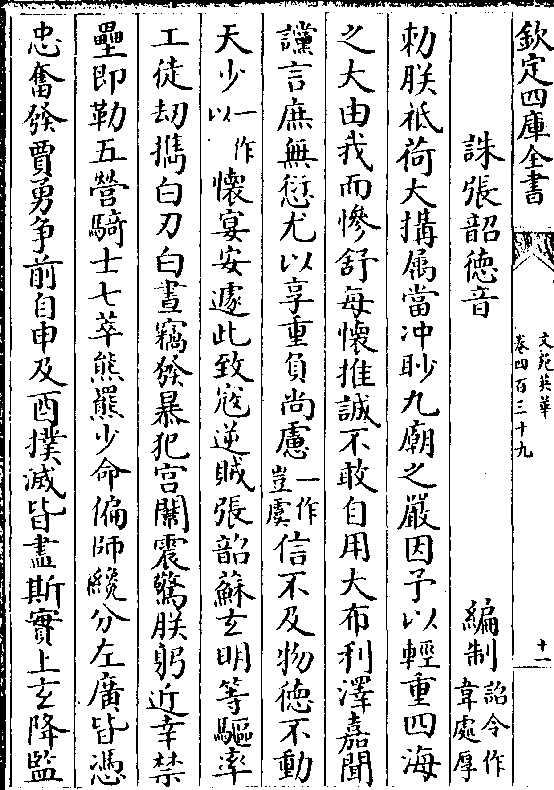 欽定四庫全書
文苑英華
卷四百三十九
十一
誅張韶德音
編制詔令作韋處厚
勑朕祗荷大搆屬當冲眇九廟之嚴因予以輕重四海
之大由我而慘舒每懷推誠不敢自用大布利澤嘉聞
讜言庶無愆尤以享重負尚慮一作豈虞信不及物德不動
天少一作以懷宴安遽此致寇逆賊張韶蘇玄明等驅率
工徒刧擕白刃白晝竊發暴犯宫闈震驚朕躬近幸禁
壘即勒五營騎士七萃熊羆少命偏師纔分左廣皆憑
忠奮發賈勇争前自申及酉撲滅皆盡斯實上玄降監